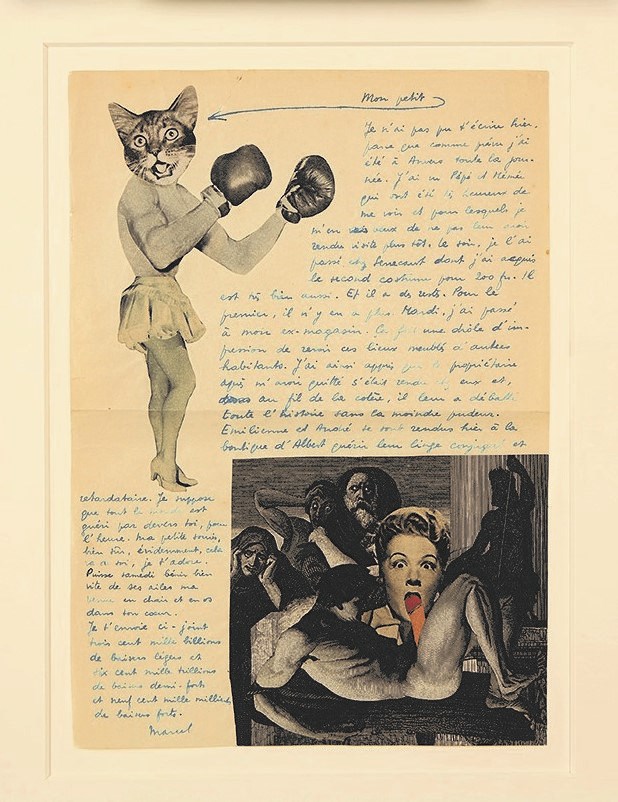 Mon petit
Je n'ai pas pu t'écrire hier,
parce que comme prévu j'ai
été à Anvers toute la jour-
née. J'ai vu Pépé et Mémée
qui ont été très heureux de
me voir et pour lesquels je
m'en veux de ne pas leur avoir
rendu visite plus tôt. Le soir, je l'ai
passé chez Senecaut dont j'ai acquis
le second costume pour 200 fr. Il
est très bien aussi. Et il a des restes. Pour le
premier, il n'y en a plus. Mardi, j'ai passé
à mon ex-magasin. Ça fait une drôle d'im-
pression de revoir ces lieux meublés d'autres
habitants. J'ai ainsi appris que le propriétaire
après m'avoir quitté s'était rendu chez eux et,
au fil de la colère, il leur a déballé
toute l'histoire sans la moindre pudeur.
Emilienne et André se sont rendus hier à la
boutique d'Albert quérir leur linge conjugal et
retardataire. Je suppose
que tout le monde est
guéri par devers toi, pour
l'heure. Ma petite souris,
bien sûr, évidemment, cela
va de soi, je t'adore.
Puisse samedi bénir bien
vite de ses ailes ma
venue en chair et en os
dans ton cœur.
Je t'envoie ci-joint
trois cent mille billions
de baisers légers et
six cent mille trillions
de baisers demi-forts
et neuf cent mille milliers
de baisers forts.
Marcel